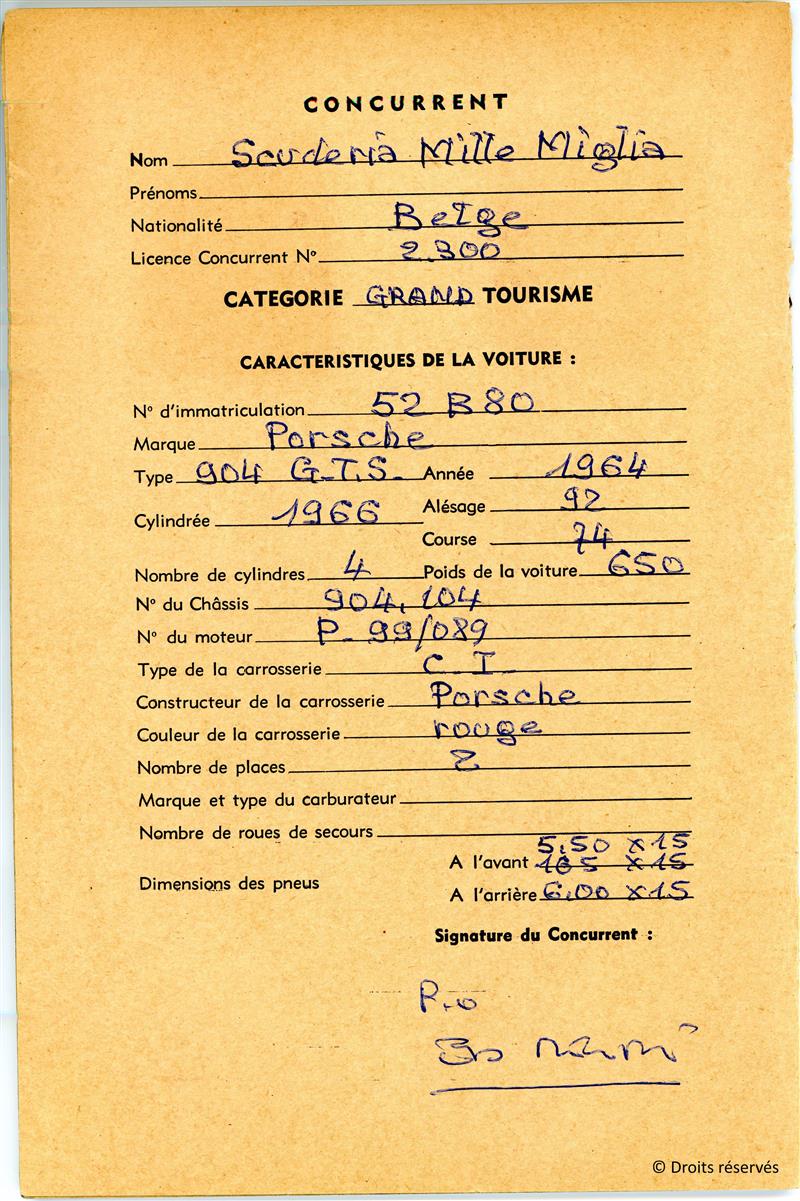 CONCURRENT
Nom Scuderia Mille Miglia
Prénoms
Nationalité Belge
Licence Concurrent N° 2.300
CATEGORIE GRAND TOURISME
CARACTERISTIQUES DE LA VOITURE :
N° d'immatriculation 52 B 80
Marque Porsche
Type 904 G.T.S. Année 1964
Cylindrée 1966 Alésage 92
Course 74
Nombre de cylindres 4 Poids de la voiture 650
N° du Châssis 904.104
N° du moteur P-99/089
Type de la carrosserie C I
Constructeur de la carrosserie Porsche
Couleur de la carrosserie rouge
Nombre de places 2
Marque et type du carburateur
Nombre de roues de secours
5.50 x 15
A l'avant 165 x 15
Dimensions des pneus
A l'arrière 6.00 x 15
Signature du Concurrent :
P.o
© Droits réservés